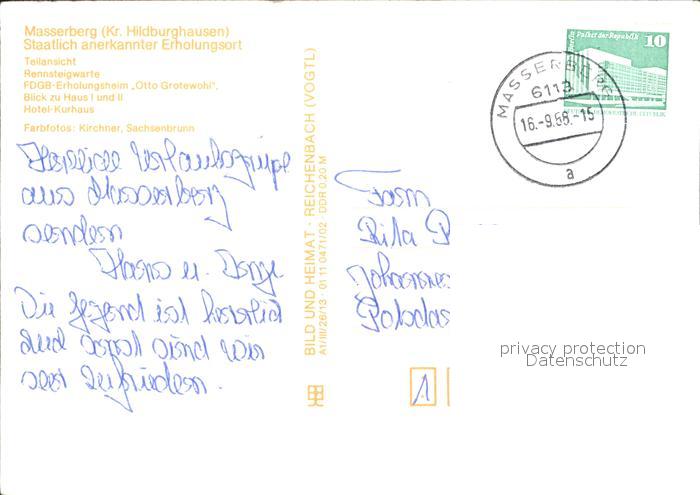 Masserberg (Kr. Hildburghausen)
Staatlich anerkannter Erholungsort
Teilansicht
Rennsteigwarte
FDGB-Erholungsheim „Otto Grotewohl",
Blick zu Haus I und II
Hotel-Kurhaus
Farbfotos: Kirchner, Sachsenbrunn
Herzliche Urlaubsgrüße
aus Masserberg
senden
Hans u. Inge
Die Gegend ist herrlich
und sonst sind wir
sehr zufrieden.
BILD UND HEIMAT · REICHENBACH (VOGTL)
A1/III/26/13 · 01 11 0471/02 · DDR 0,20 M
Berlin Palast der Republik
10
MASSERBERG
6113
16.-9.88.-15
a
Fam
Rita
Johannes
Potsdam
1
privacy protection
Datenschutz